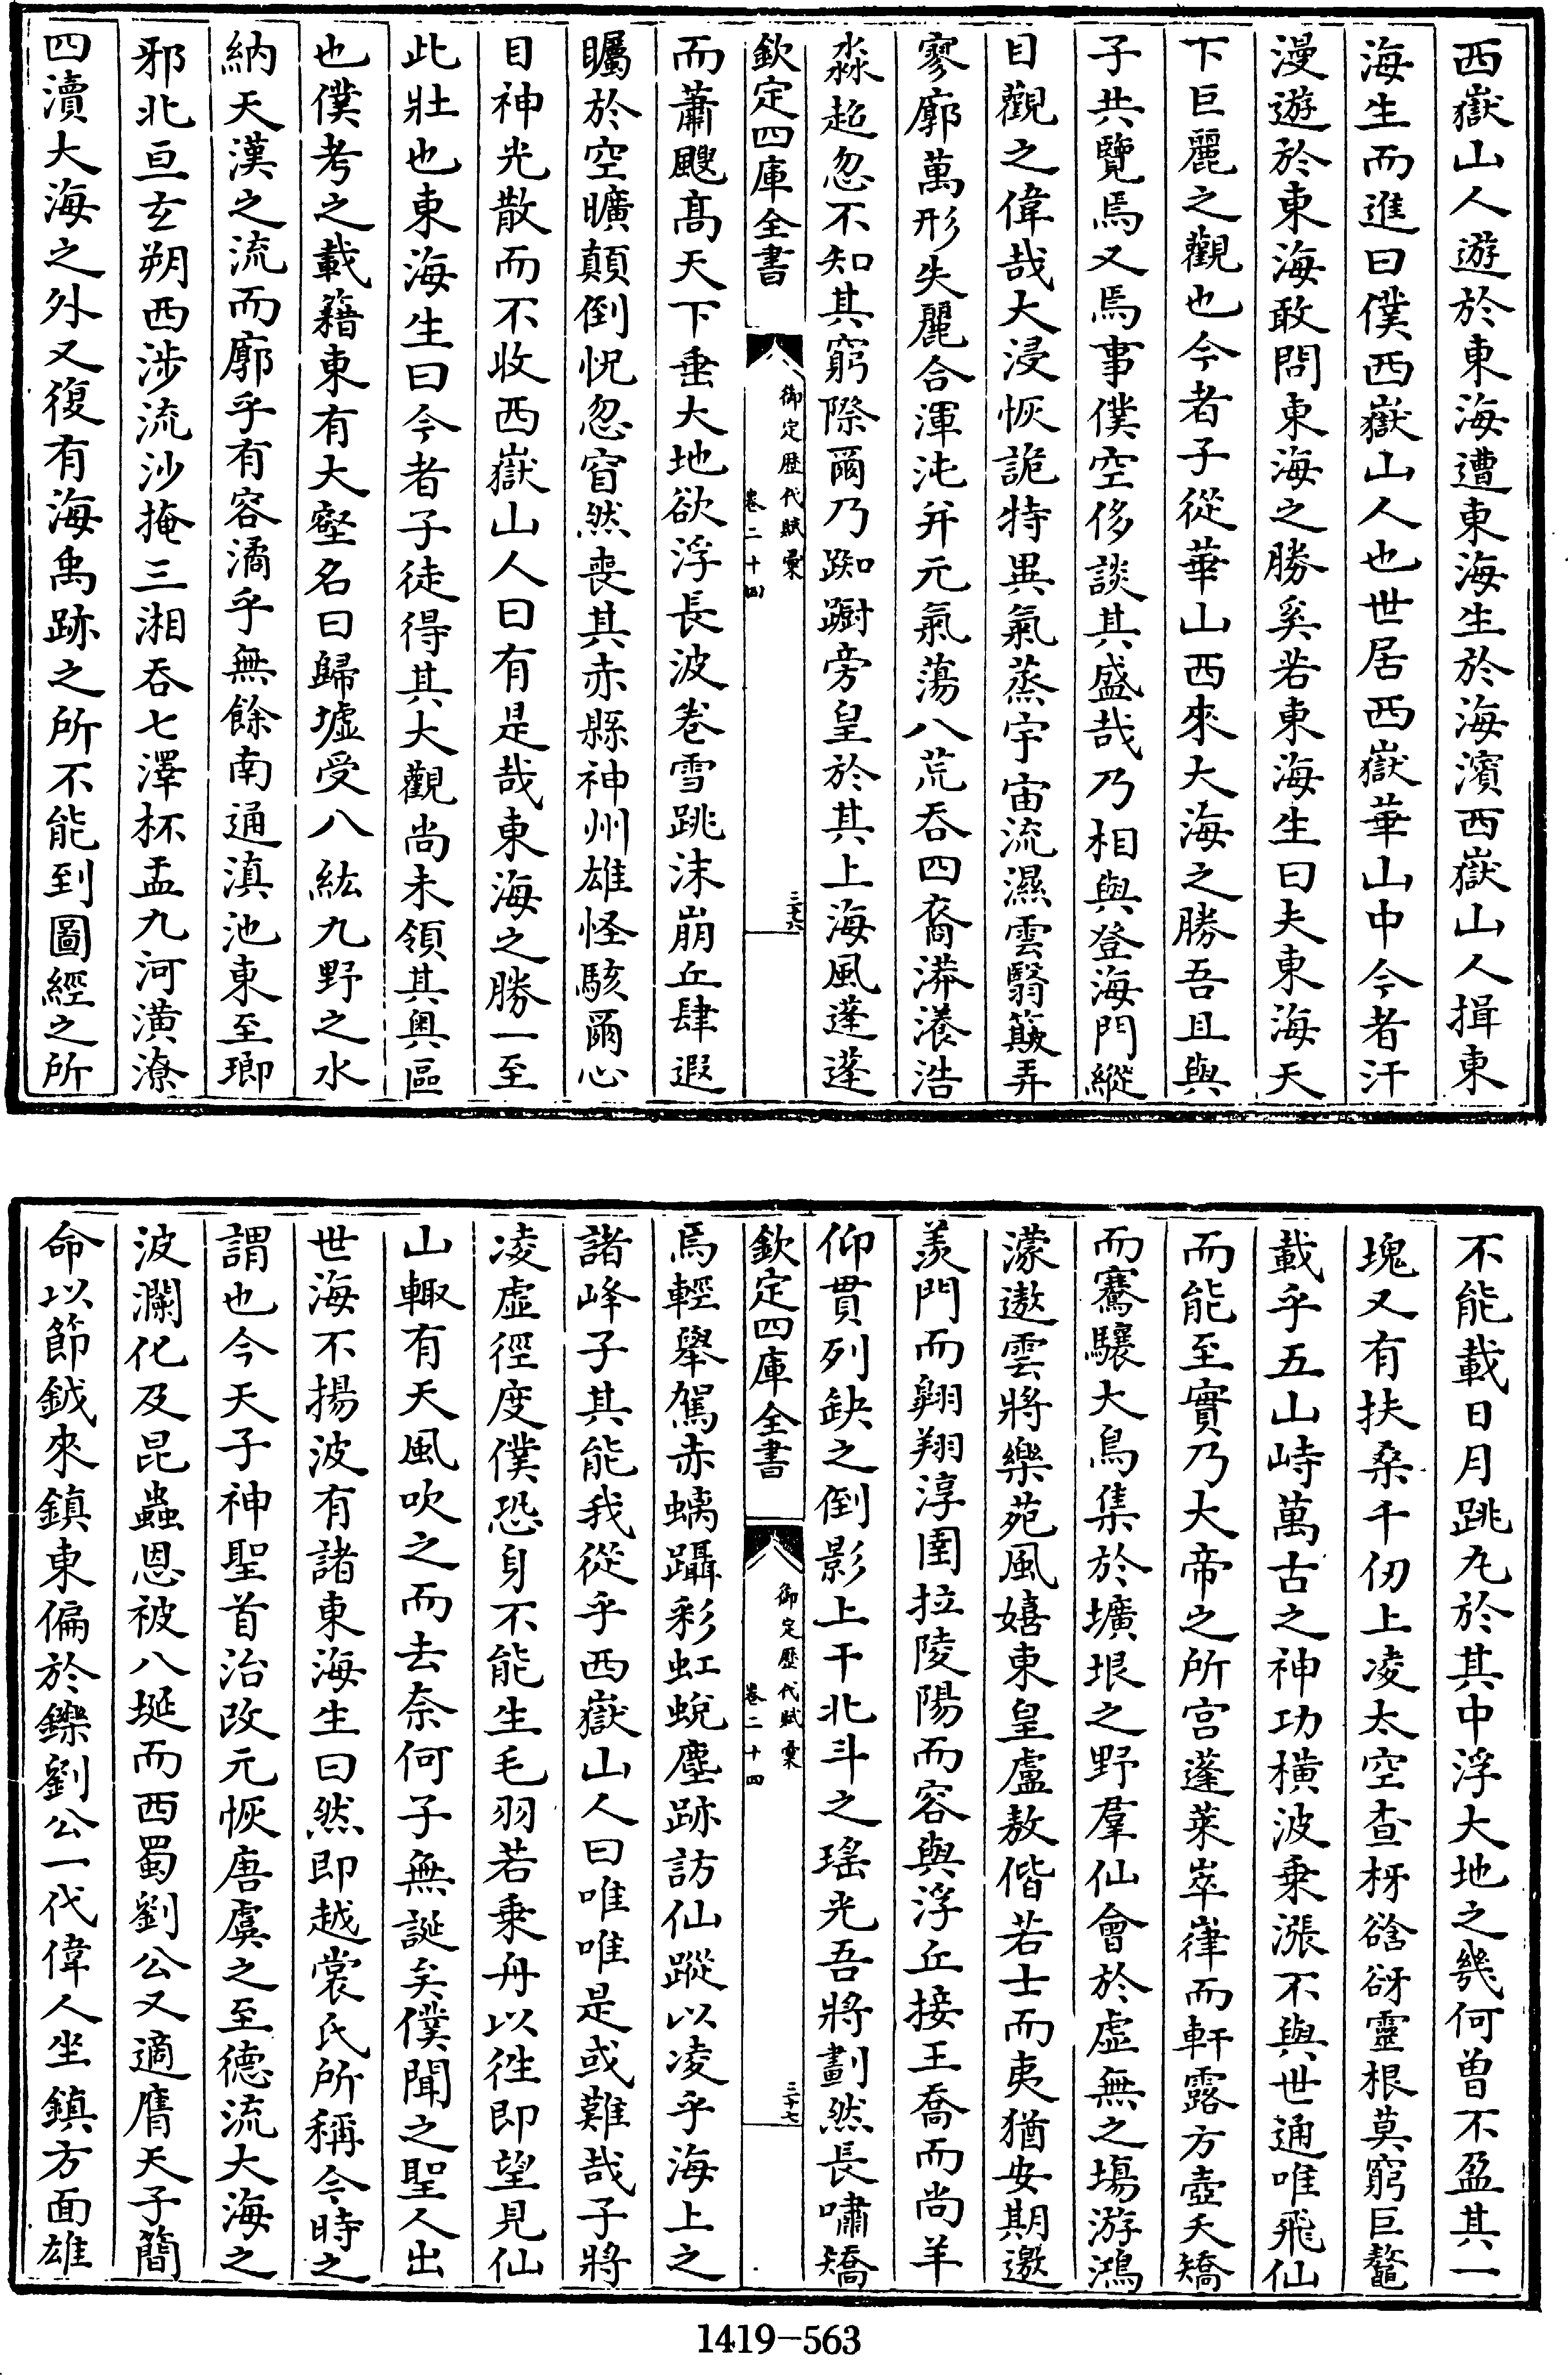 西嶽山人遊於東海遭東海生於海濱西嶽山人揖東
海生而進曰僕西嶽山人也世居西嶽華山中今者汗
漫遊於東海敢問東海之勝奚若東海生曰夫東海天
下巨麗之觀也今者子從華山西來大海之勝吾且與
子共覽焉又焉事僕空侈談其盛哉乃相與登海門縱
目觀之偉哉大浸恢詭特異氣蒸宇宙流濕雲翳簸弄
寥廓萬形失麗合渾沌并元氣蕩八荒吞四裔漭瀁浩
淼超忽不知其窮際爾乃踟躕旁皇於其上海風蓬蓬
欽定四庫全書
御定歷代賦彙
卷二十四
三十六
而蕭颼高天下垂大地欲浮長波卷雪跳沫崩丘肆遐
矚於空曠顛倒怳忽窅然喪其赤縣神州雄怪駭爾心
目神光散而不收西嶽山人曰有是哉東海之勝一至
此壯也東海生曰今者子徒得其大觀尚未領其奥區
也僕考之載籍東有大壑名曰歸墟受八紘九野之水
納天漢之流而廓乎有容潏乎無餘南通滇池東至瑯
邪北亘玄朔西涉流沙掩三湘吞七澤杯盂九河潢潦
四瀆大海之外又復有海禹跡之所不能到圖經之所
不能載日月跳九於其中浮大地之幾何曽不盈其一
塊又有扶桑千仞上凌太空查枒谽谺靈根莫窮巨鼇
載乎五山峙萬古之神功横波乗漲不與世通唯飛仙
而能至實乃大帝之所宫蓬萊崒嵂而軒露方壺夭矯
而騫驤大鳥集於壙垠之野羣仙會於虚無之場游鴻
濛遨雲將樂苑風嬉東皇盧敖偕若士而夷猶安期邀
羨門而翺翔淳圉拉陵陽而容與浮丘接王喬而尚羊
仰貫列缺之倒影上干北斗之瑤光吾將劃然長嘯矯
欽定四庫全書
御定歷代賦彙
卷二十四
三十七
焉輕舉駕赤螭躡彩虹蛻塵跡訪仙蹤以凌乎海上之
諸峰子其能我從乎西嶽山人曰唯唯是或難哉子將
凌虚徑度僕恐身不能生毛羽若乗舟以往即望見仙
山輙有天風吹之而去奈何子無誕矣僕聞之聖人出
世海不揚波有諸東海生曰然即越裳氏所稱今時之
謂也今天子神聖首治改元恢唐虞之至德流大海之
波瀾化及昆蟲恩被八埏而西蜀劉公又適膺天子簡
命以節鉞來鎮東偏於鑠劉公一代偉人坐鎮方面雄
1419-563